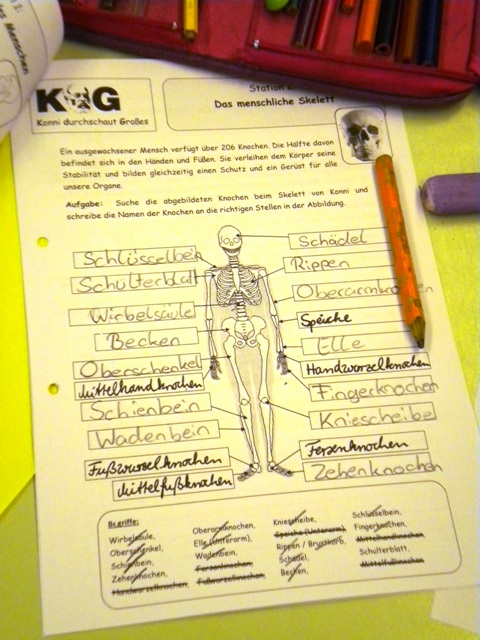 Menschen
KG
Konni durchschaut Großes
Station
Das menschliche Skelett
Ein ausgewachsener Mensch verfügt über 206 Knochen. Die Hälfte davon
befindet sich in den Händen und Füßen. Sie verleihen dem Körper seine
Stabilität und bilden gleichzeitig einen Schutz und ein Gerüst für alle
unsere Organe.
Aufgabe: Suche die abgebildeten Knochen beim Skelett von Konni und
schreibe die Namen der Knochen an die richtigen Stellen in der Abbildung.
Schlüsselbein
Schulterblatt
Wirbelsäule
Becken
Oberschenkel
Mittelhandknochen
Schienbein
Wadenbein
Fußwurzelknochen
Mittelfußknochen
Schädel
Rippen
Oberarmknochen
Speiche
Elle
Handwurzelknochen
Fingerknochen
Kniescheibe
Fersenknochen
Zehenknochen
Begriffe:
Wirbelsäule,
Oberschenkel,
Schienbein,
Zehenknochen,
Handwurzelknochen,
Oberarmknochen,
Elle (Unterarm),
Wadenbein,
Fersenknochen,
Fußwurzelknochen,
Kniescheibe,
Speiche (Unterarm),
Rippen / Brustkorb,
Schädel,
Becken,
Schlüsselbein,
Fingerknochen,
Mittelhandknochen,
Schulterblatt,
Mittelfußknochen